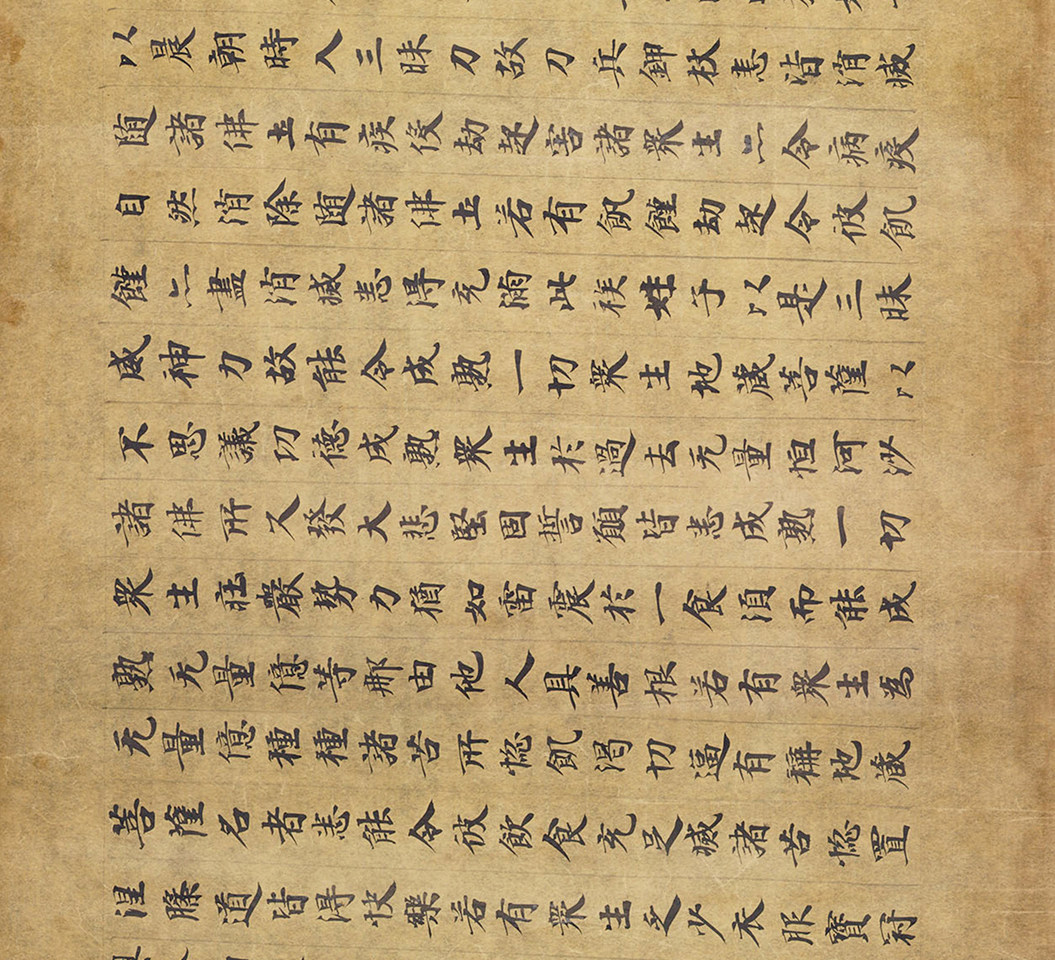 以晨朝時入三昧力故刀兵鉀杖悉皆消滅
随諸佛土有疾役劫起害諸衆生亦令病疫
自然消除随諸佛土若有飢饉劫起令彼飢
饉亦盡消滅悉得充滿此族姓子以是三昧
威神力故能令成熟一切衆生地蔵菩薩以
不思議功德成熟衆生於過去无量恒河沙
諸佛所久發大悲堅固誓願皆悉成熟一切
衆生莊嚴勢力猶如雷震於一食須而能成
熟无量億等那由他人具善根若有衆生為
无量億種種諸苦所惱飢渴切逼有稱地蔵
菩薩名者悉能令彼飲食充足滅諸苦惱置
涅槃道皆得快樂若有衆生乏少衣服寶冠